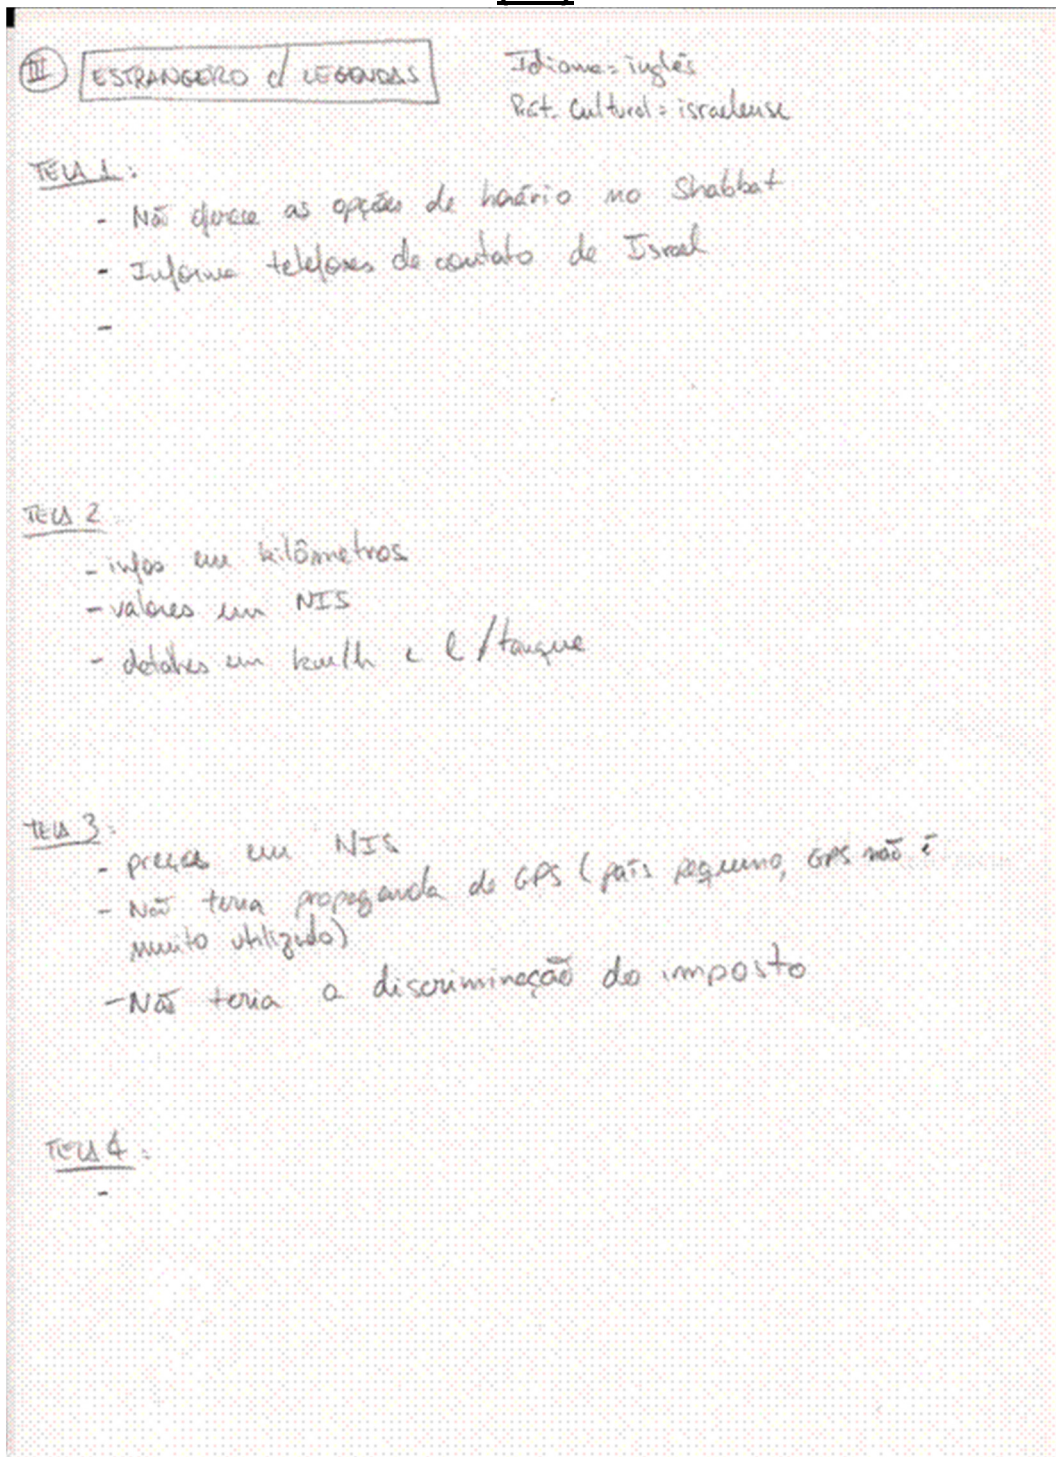 III ESTRANGEIRO c/ LEGENDAS
Idioma = inglês
Prát. Cultural = israelense
TELA 1:
- Não oferece as opções de horário no Shabbat
- Informa telefones de contato de Israel
-
TELA 2
- infos em kilômetros
- valores em NIS
- detalhes em km/h e l/tanque
TELA 3:
- preços em NIS
- Não teria propaganda de GPS (país pequeno, GPS não é
muito utilizado)
- Não teria a discriminação do imposto
TELA 4:
-